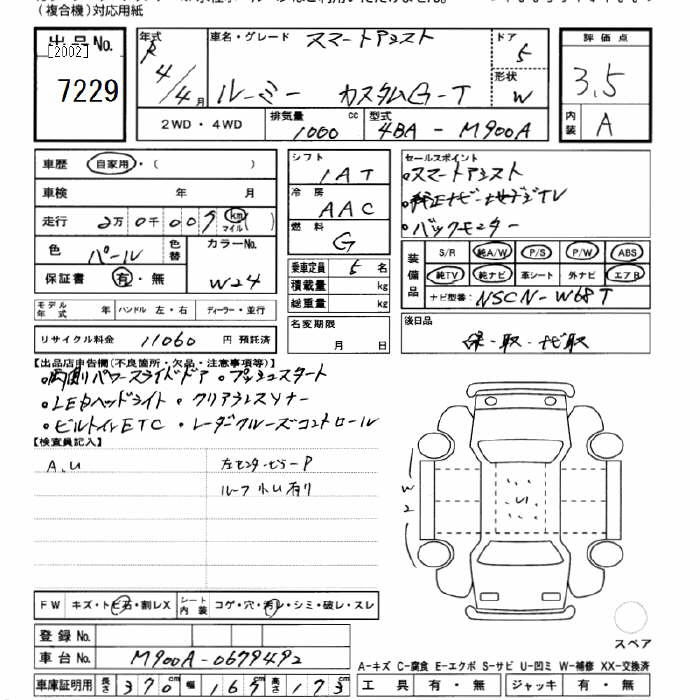 (複合機)対応用紙
出品No. 年式 R 車名・グレード スマートアシスト ドア 5 評価点
[2002]
7229 4/4月 ルーミー カスタムG-T 形状 W 3.5
2WD・4WD 排気量 1000 cc 型式 4BA-M900A 内装 A
車歴 自家用・( ) シフト IAT セールスポイント
・スマートアシスト
車検 年 月 冷房 AAC ・純正ナビ・地デジTV
走行 2万0千009km マイル ( ) 燃料 G ・バックモニター
色 パール 色替 カラーNo. W24 乗車定員 5名 装備品 S/R 純A/W P/S P/W ABS
保証書 有・無 積載量 kg 純TV 純ナビ 革シート 外ナビ エアB
総重量 kg ナビ型番: NSCN-W68T
モデル年式 年 ハンドル 左・右 ディーラー・並行 名変期限 月 日 後日品
リサイクル料金 11060 円 預託済 保・取・ナビ取
【出品店申告欄(不良箇所・欠品・注意事項等)】
・両側パワースライドドア ・プッシュスタート
・LEDヘッドライト ・クリアランスソナー
・ビルトインETC ・レーダークルーズコントロール
【検査員記入】
A.U 左センターピラーP
ルーフ小U有り
W2
U
FW キズ・トビ石・割レX シート内装 コゲ・穴・汚レ・シミ・破レ・スレ
登録No. スペア
車台No. M900A-0679492 A-キズ C-腐食 E-エクボ S-サビ U-凹ミ W-補修 XX-交換済
車庫証明用 長さ 370 幅 167 高さ 173 工具 有・無 ジャッキ 有・無